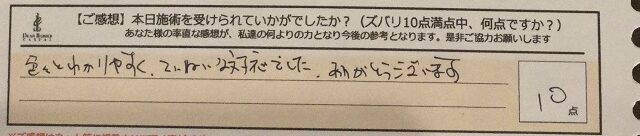 【ご感想】本日施術を受けられていかがでしたか？（ズバリ10点満点中、何点ですか？）
あなた様の率直な感想が、私達の何よりの力となり今後の参考となります。是非ご協力お願いします
色々とわかりやすく、ていねいな対応でした。ありがとうございます
10点